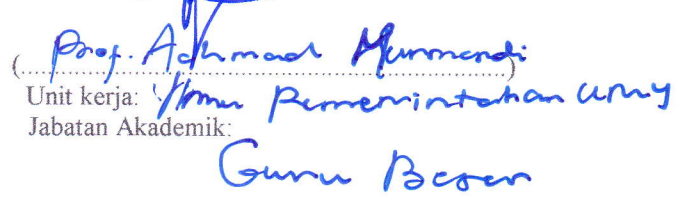 (Prof. Achmad Nurmandi)
Unit kerja: Ilmu Pemerintahan UMY
Jabatan Akademik:
Guru Besar